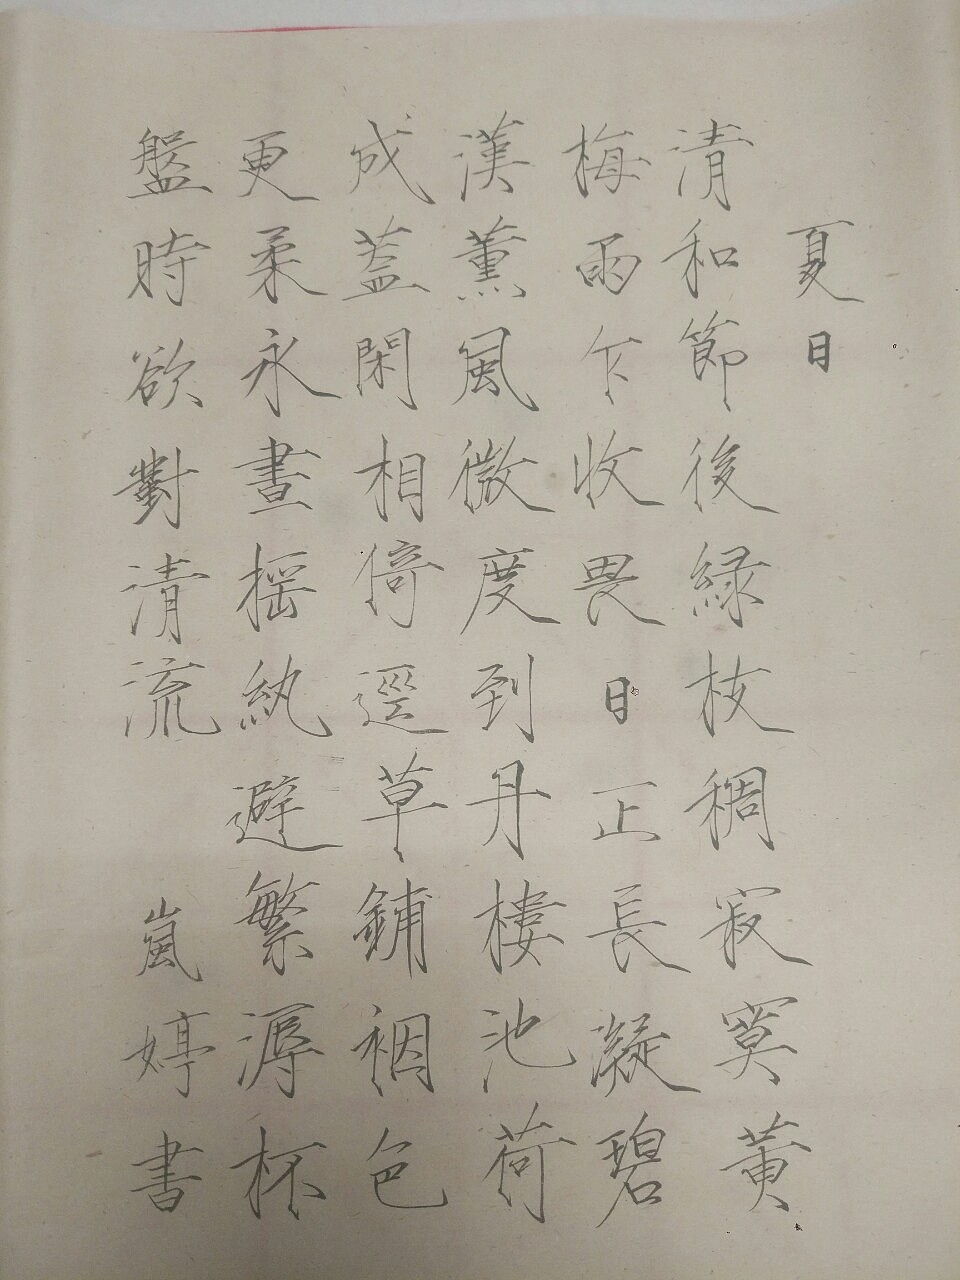 夏日
清和節後綠枝稠寂寞黃
梅雨乍收畏日正長凝碧
漢薰風微度到丹樓池荷
成蓋閑相倚逕草鋪裀色
更柔永晝搖紈避繁溽杯
盤時欲對清流
嵐婷書